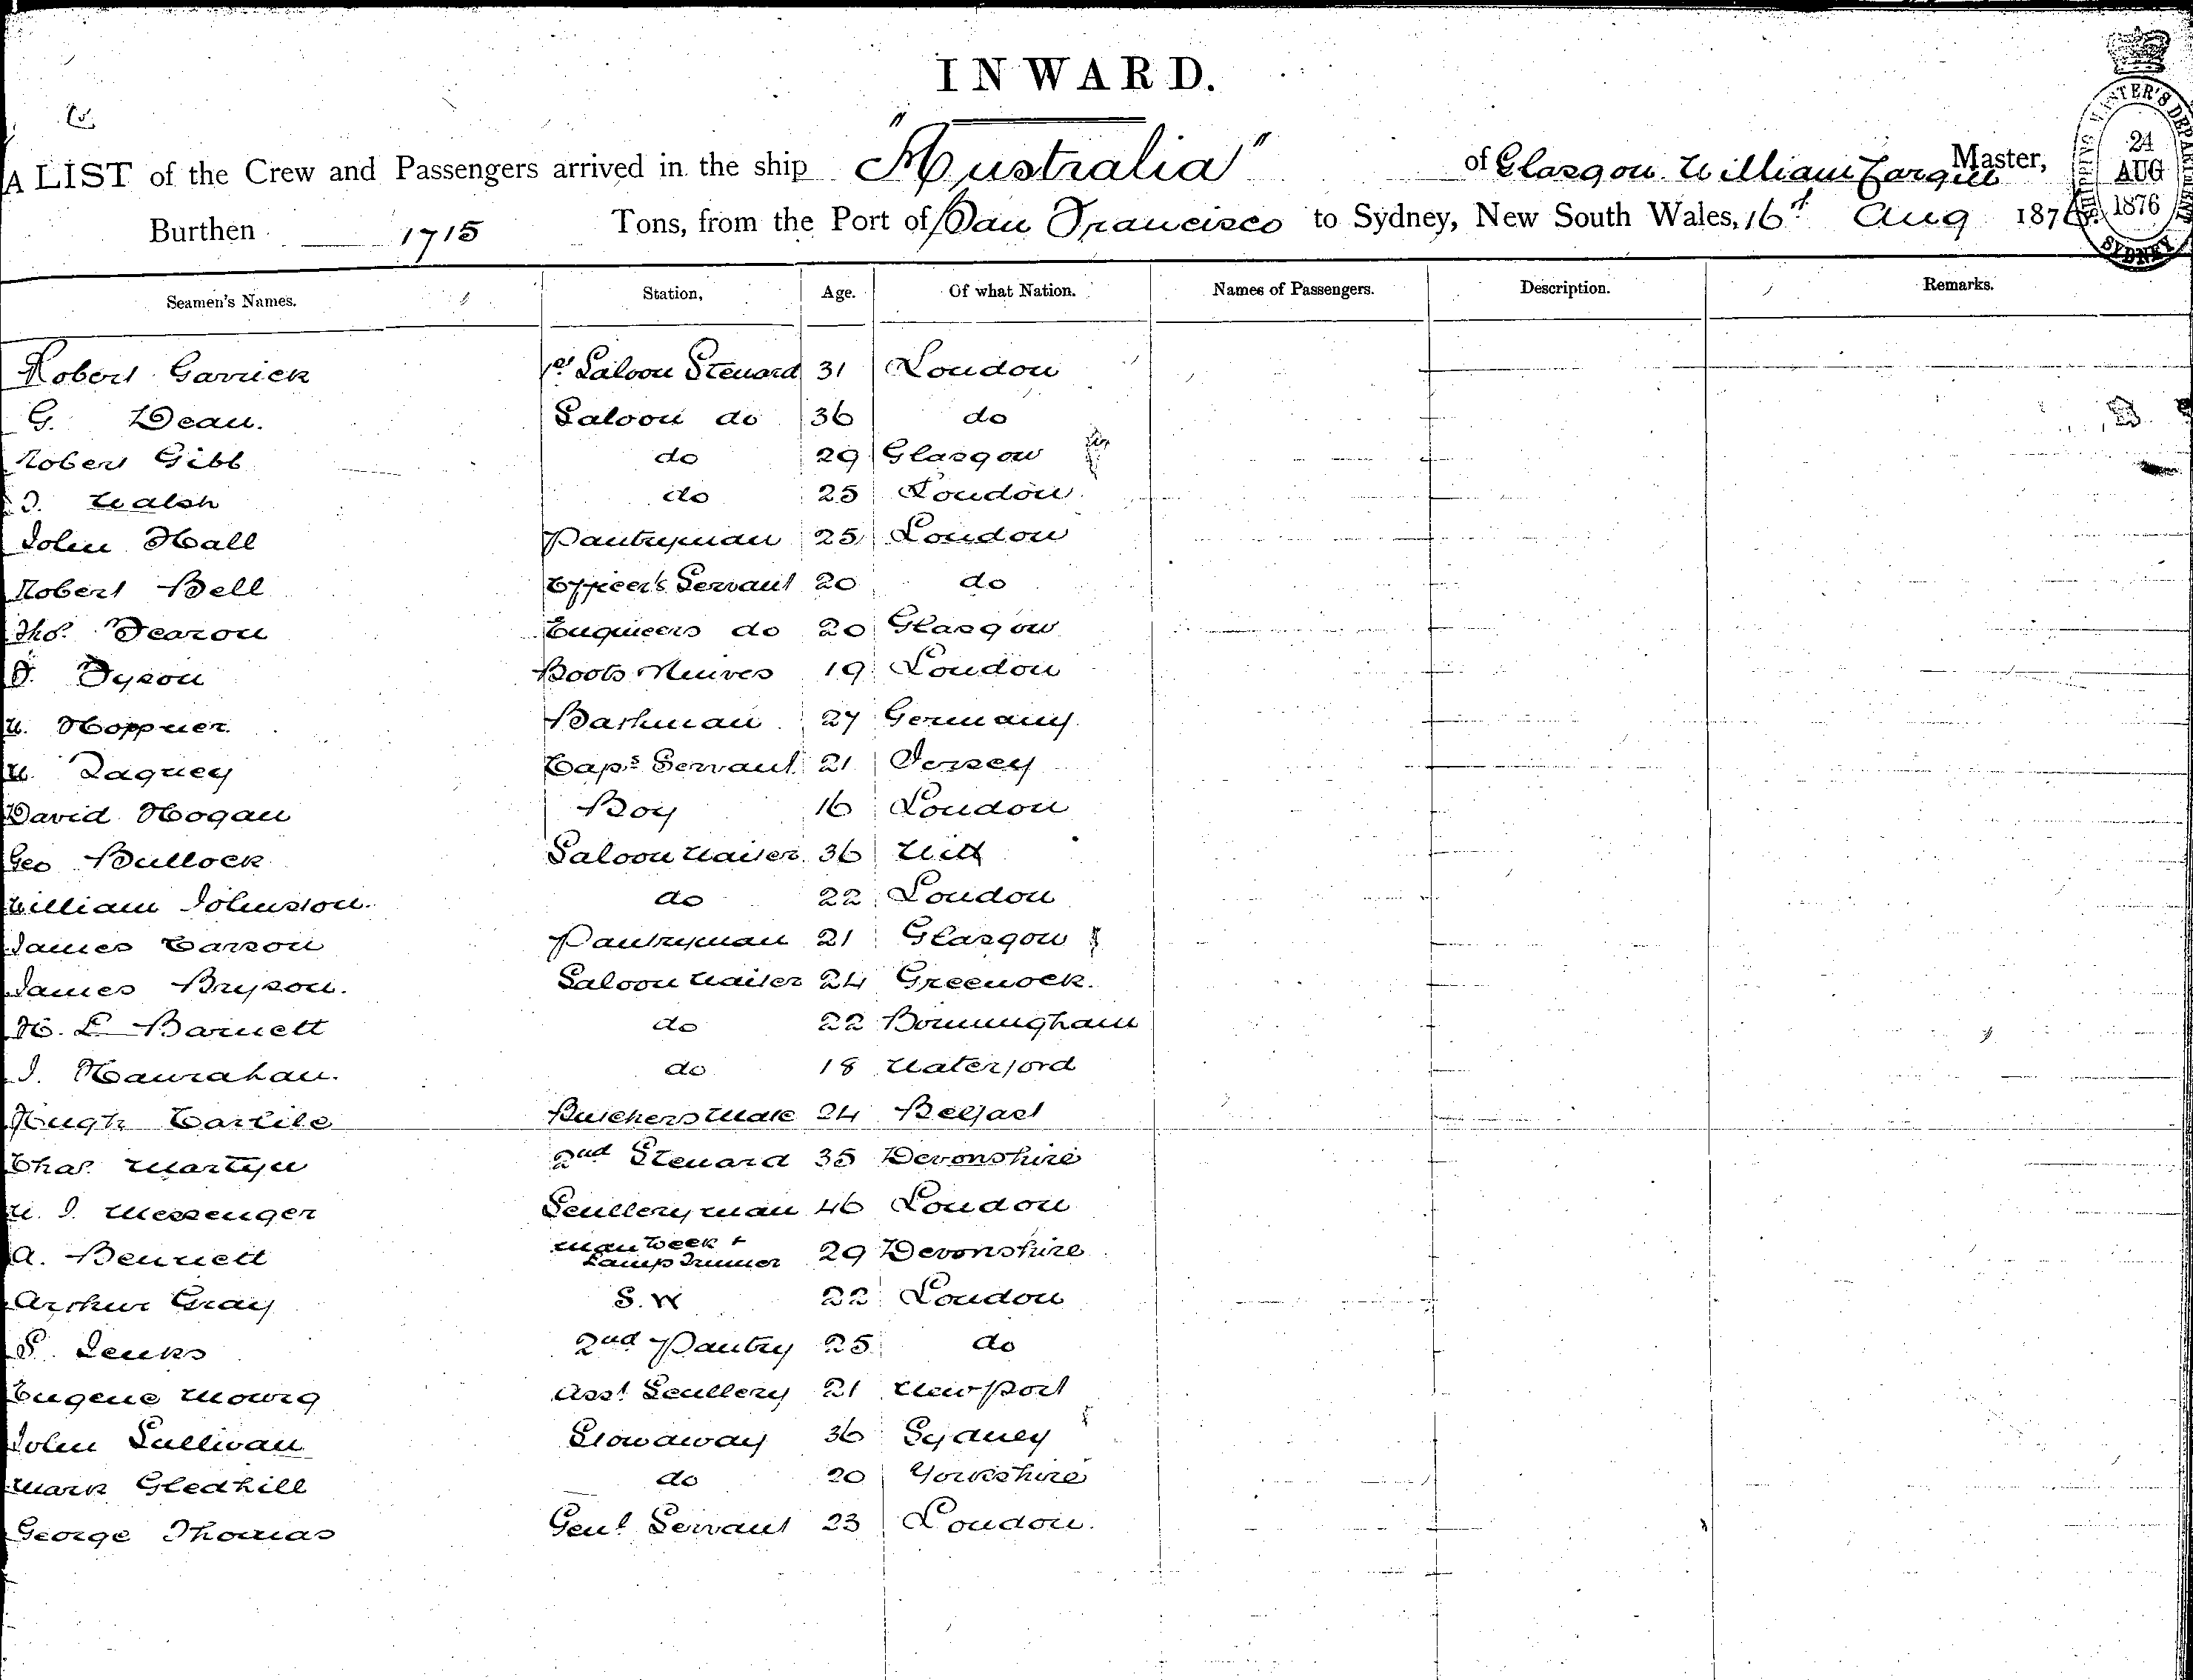 INWARD.
A LIST of the Crew and Passengers arrived in the ship "Australia" of Glasgow William Cargill Master,
Burthen 1715 Tons, from the Port of San Francisco to Sydney, New South Wales, 16th Aug 1876.
SHIPPING MASTER'S DEPARTMENT
24
AUG
1876
SYDNEY
Seamen's Names. Station, Age. Of what Nation. Names of Passengers. Description. Remarks.
Robert Garrick 1st Saloon Steward 31 London
G. Dean. Saloon do 36 do
Robert Gibb do 29 Glasgow
Walsh do 25 London
John Hall Pantryman 25 London
Robert Bell Officer's Servant 20 do
Thos. Fearon Engineers do 20 Glasgow
Dyson Boots Knives 19 London
W. Hoppner. Barman 27 Germany
W. Capts Servant 21 Jersey
David Hogan Boy 16 London
Geo Bullock Saloon Waiter 36
William Johnston. do 22 London
James Carson Pantryman 21 Glasgow
James Bryson. Saloon Waiter 24 Greenock.
H. L Barnett do 22 Bormingham
J. Hanrahan. do 18 Waterford
Hugh Carlile Butchers Mate 24 Belfast
Chas. Martyn 2nd Steward 35 Devonshire
W. J. Messenger Scullery man 46 London
A. Bennett Lamp Trimmer 29 Devonshire
Arthur Gray S.W 22 London
S. Jenks 2nd Pantry 25 do
Eugene Asst Scullery 21 Newport
John Sullivan Stowaway 36 Sydney
Mark Gledhill do 20 Yorkshire
George Thomas Genl Servant 23 London.